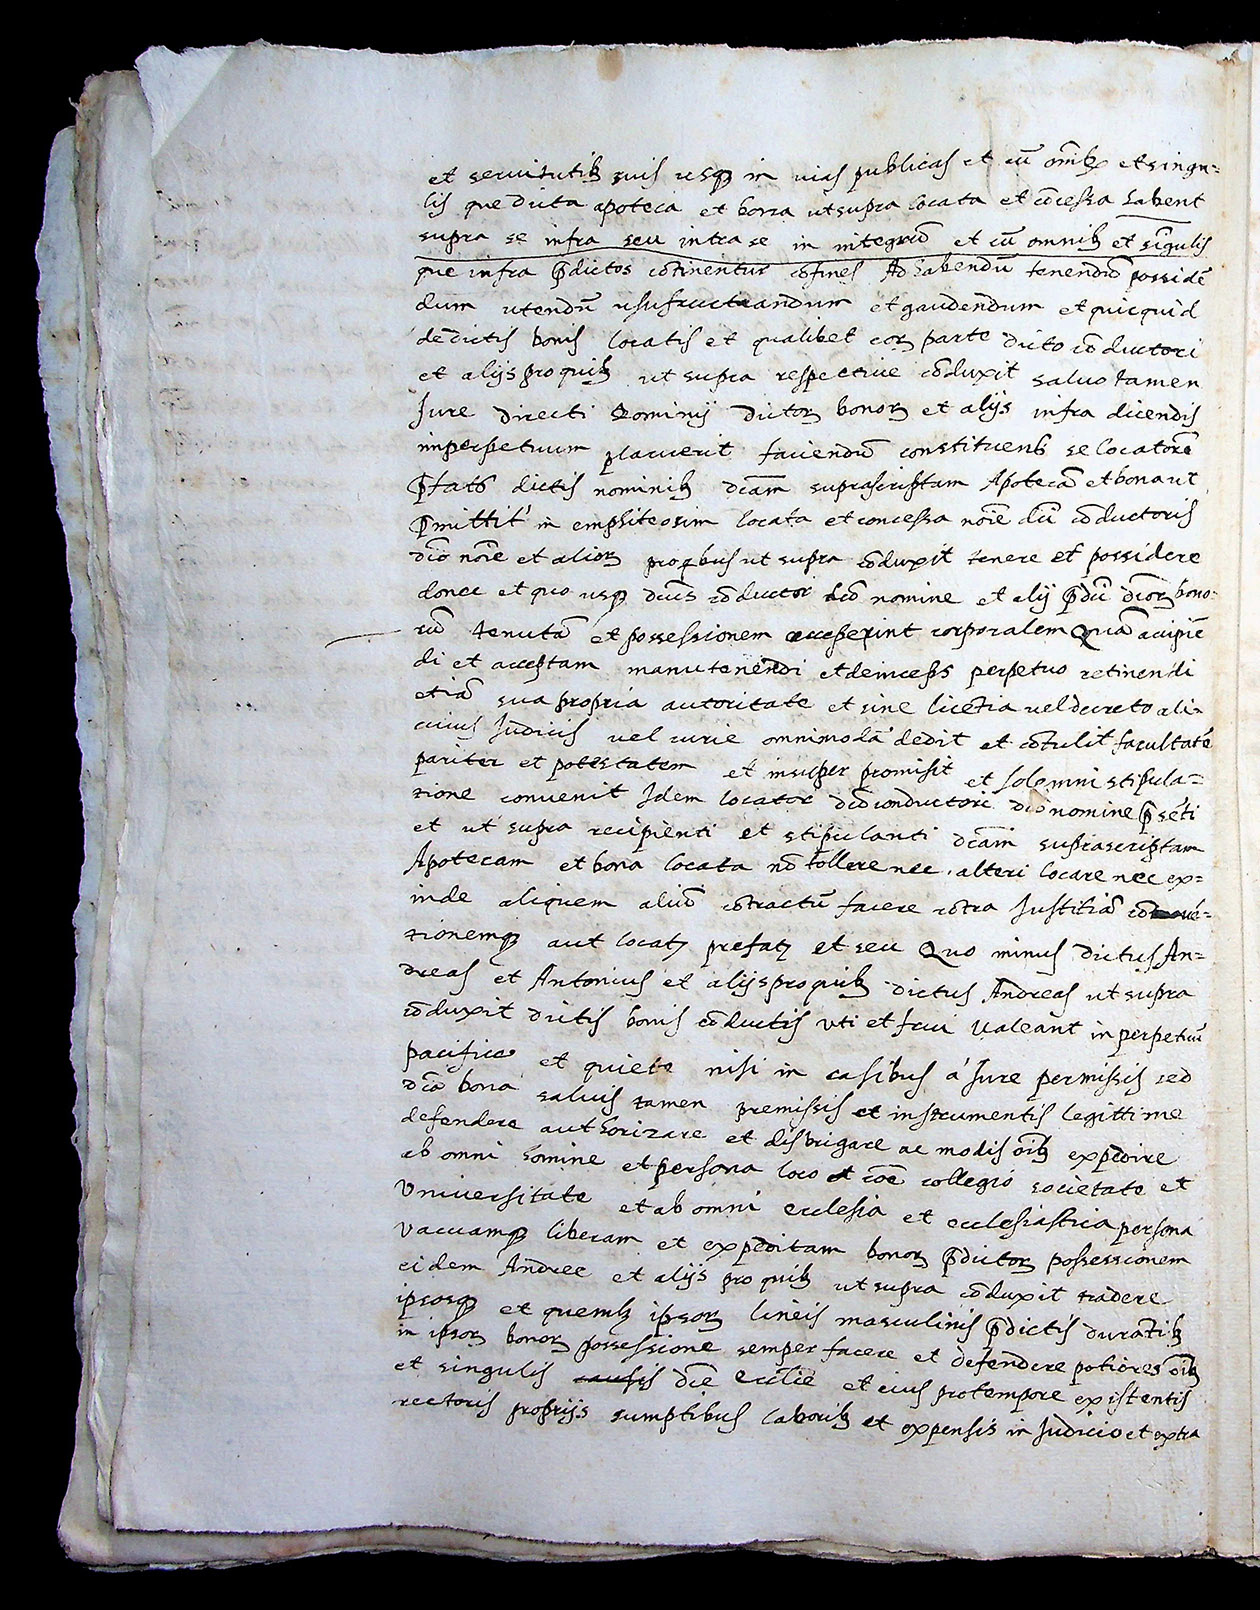 et seruitutib₃ suis usq₃ in uias publicas et cū om̄ib₃ et singu=
lis que dicta apoteca et bona ut supra locata et cōcessa habent
supra se infra seu intra se in integrū et cū omnib₃ et sīgulis
que infra p̄dictos cōtinentur cōfines Ad habendū tenendū possidē
dum utendū usufructuandum et gaudendum et quicquid
de dictis bonis locatis et qualibet eoꝝ parte dicto cōductori
et alijs pro quib₃ ut supra respectiue cōduxit saluo tamen
Jure directi Dominij dictoꝝ bonoꝝ et alijs infra dicendis
imperpetuum placuerit faciendū constituens se locatorē
p̄fatus dictis nominib₃ dcām suprascriptam Apotecā et bona ut
p̄mittit' in emphiteosim locata et concessa noīe dci cōductoris
dco noīe et alioꝝ pro qbus ut supra cōduxit tenere et possidere
donec et quo usq₃ dcūs cōductor dco nomine et alij p̄dci dcoꝝ bono-
rū tenutā et possessionem acceperint corporalem Quā accipiē
di et acceptam manutenendi et deinceps perpetuo retinendi
etiā sua propria autoritate et sine licētia uel decreto ali-
cuius Judicis uel curie omnimodā dedit et cōtulit facultatē
pariter et potestatem et insuper promisit et solemni stipula=
tione conuenit Idem locator dco conductori dco nomine p̄sēti
et ut supra recipienti et stipulanti dcām suprascriptam
Apotecam et bona locata nō tollere nec alteri locare nec ex=
inde aliquem aliū cōtractū facere cōtra Justitiā cōuē=
tionemq₃ aut locat prefat et seu Quo minus dictus An=
dreas et Antonius et alijs pro quib₃ dictus Andreas ut supra
cōduxit dictis bonis cōductis uti et frui Valeant in perpetuū
pacifice et quiete nisi in casibus á Jure permissis sed
dcā bona saluis tamen premissis et instrumentis legittime
defendere authorizare et disbrigare ac modis oīb₃ expedire
ab omni homine et persona loco et coē collegio societate et
Vniuersitate et ab omni ecclesia et ecclesiastica persona
Vacuamq₃ liberam et expeditam bonoꝝ p̄dictoꝝ possessionem
eidem Andree et alijs pro quib₃ ut supra cōduxit tradere
ipsosq₃ et quemlib₃ ipsoꝝ lineis masculinis p̄dictis durātib₃
in ipsoꝝ bonoꝝ possessione semper facere et defendere potiores oīb₃
et singulis dcē Ecclīe et eius pro tempore existentis
rectoris proprijs sumptibus laborib₃ et expensis in Judicio et extra